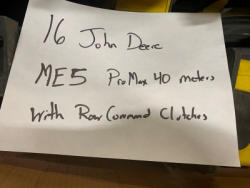 16 John Deere
ME5 ProMax 40 meters
With Row Command Clutches